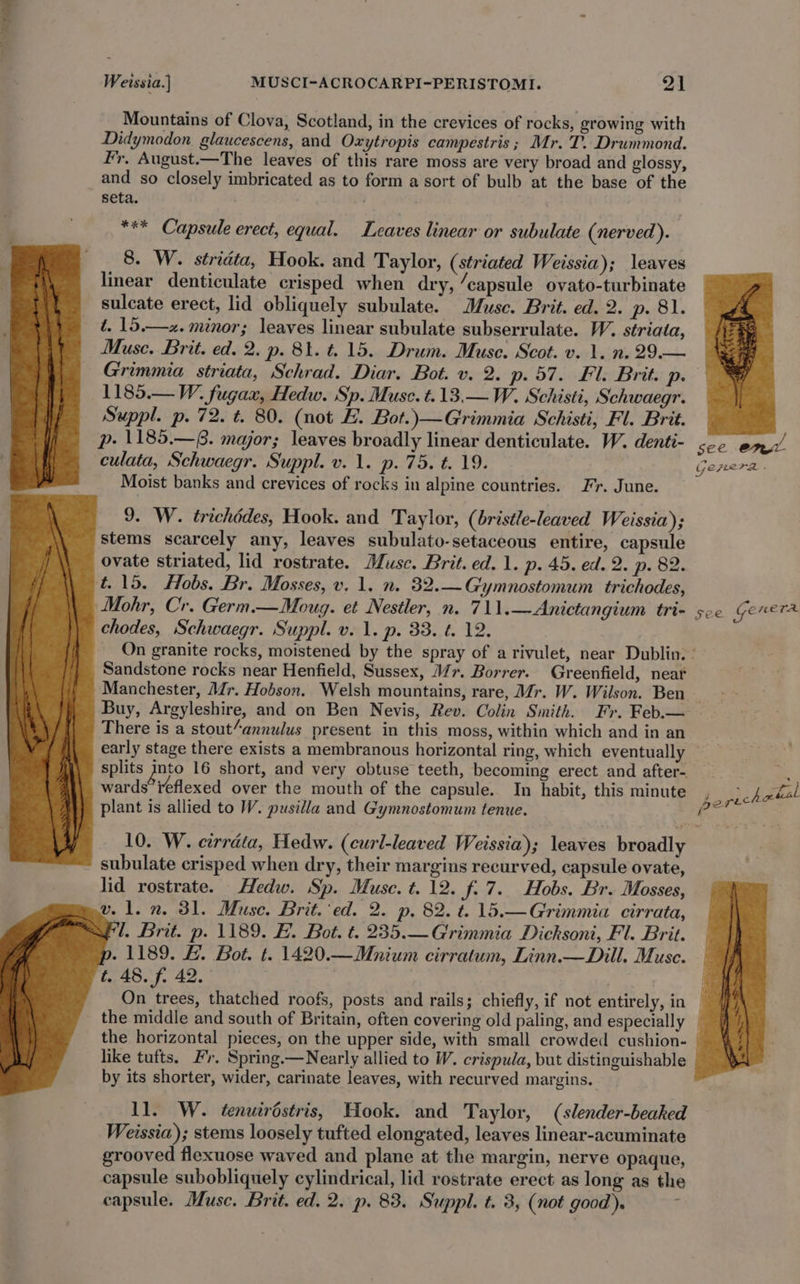 Weissia.] MUSCI-ACROCARPI-PERISTOMI. 21
Mountains of Clova, Scotland, in the crevices of rocks, growing with
Didymodon glaucescens, and Oxytropis campestris; Mr. T. Drummond.
Fr. August.—The leaves of this rare moss are very broad and glossy,
and so closely imbricated as to form a sort of bulb at the base of the
seta.
*** Capsule erect, equal. Leaves linear or subulate (nerved).
8. W. striáta, Hook. and Taylor, (striated Weissia); leaves
linear denticulate crisped when dry, capsule ovato-turbinate
sulcate erect, lid obliquely subulate. Musc. Brit. ed. 2. p. 81.
t. 15.—α. minor; leaves linear subulate subserrulate. W. striata,
Musc. Brit. ed. 2. p. 81. t. 15. Drum. Musc. Scot. v. 1. n. 29.—
Grimmia striata, Schrad. Diar. Bot. v. 2. p. 57. Fl. Brit. p.
1185.—W. fugax, Hedw. Sp. Musc. t. 13.—W. Schisti, Schwaegr.
Suppl. p. 72. t. 80. (not E. Bot.)—Grimmia Schisti, Fl. Brit.
p. 1185.—β. major; leaves broadly linear denticulate. W. denti-
culata, Schwaegr. Suppl. v. 1. p. 75. t. 19.
see
Genera.
Moist banks and crevices of rocks in alpine countries. Fr. June.
9. W. trichódes, Hook. and Taylor, (bristle-leaved Weissia);
stems scarcely any, leaves subulato-setaceous entire, capsule
ovate striated, lid rostrate. Musc. Brit. ed. 1. p. 45. ed. 2. p. 82.
t. 15. Hobs. Br. Mosses, v. 1. n. 32.—Gymnostomum trichodes,
Mohr, Cr. Germ.—Moug. et Nestler, n. 711.—Anictangium tri-
see Genera
chodes, Schwaegr. Suppl. v. 1. p. 33. t. 12.
On granite rocks, moistened by the spray of a rivulet, near Dublin.
Sandstone rocks near Henfield, Sussex, Mr. Borrer. Greenfield, near
Manchester, Mr. Hobson. Welsh mountains, rare, Mr. W. Wilson. Ben
Buy, Argyleshire, and on Ben Nevis, Rev. Colin Smith. Fr. Feb.—
There is a stout annulus present in this moss, within which and in an
early stage there exists a membranous horizontal ring, which eventually
splits into 16 short, and very obtuse teeth, becoming erect and after-
wards reflexed over the mouth of the capsule. In habit, this minute
plant is allied to W. pusilla and Gymnostomum tenue.
10. W. cirráta, Hedw. (curl-leaved Weissia); leaves broadly
subulate crisped when dry, their margins recurved, capsule ovate,
lid rostrate. Hedw. Sp. Musc. t. 12. f. 7. Hobs. Br. Mosses,
v. 1. n. 31. Musc. Brit. ed. 2. p. 82. t. 15.—Grimmia cirrata,
Fl. Brit. p. 1189. E. Bot. t. 235.—Grimmia Dicksoni, Fl. Brit.
p. 1189. E. Bot. t. 1420.—Mnium cirratum, Linn.—Dill. Musc.
t. 48. f. 42.
On trees, thatched roofs, posts and rails; chiefly, if not entirely, in
the middle and south of Britain, often covering old paling, and especially
the horizontal pieces, on the upper side, with small crowded cushion-
like tufts. Fr. Spring.—Nearly allied to W. crispula, but distinguishable
by its shorter, wider, carinate leaves, with recurved margins.
11. W. tenuiróstris, Hook. and Taylor, (slender-beaked
Weissia); stems loosely tufted elongated, leaves linear-acuminate
grooved flexuose waved and plane at the margin, nerve opaque,
capsule subobliquely cylindrical, lid rostrate erect as long as the
capsule. Musc. Brit. ed. 2. p. 83. Suppl. t. 3, (not good).